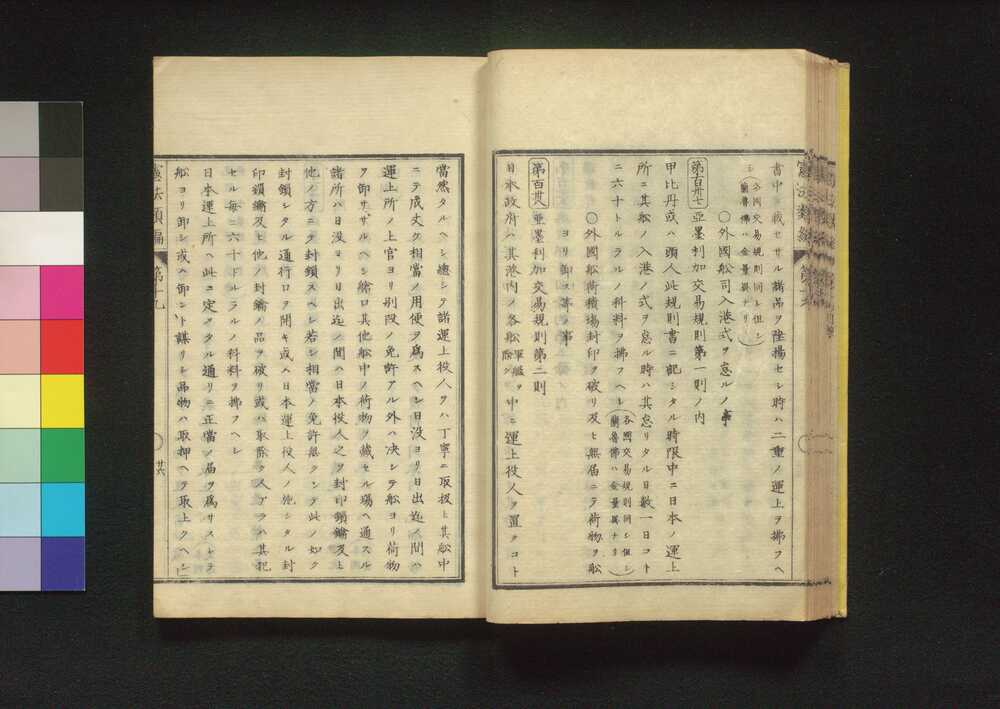 書中ニ載セサル諸品ヲ陸揚セシ時ハ二重ノ運上ヲ拂フヘ
シ(各國交易規則同シ但シ蘭魯佛ハ金量異ナリ)
○外國舩司入港式ヲ怠ルノ事
第百卅七 亞墨利加交易規則第一則ノ内
甲比丹或ハ頭人此規則書ニ記シタル時限中ニ日本ノ運上
所ニ其舩ノ入港ノ式ヲ怠ル時ハ其怠リタル日數一日コト
ニ六十トルラルノ科料ヲ拂フヘシ(各國交易規則同シ但シ蘭魯佛ハ金量異ナリ)
○外國舩荷積場封印ヲ破リ及ヒ無届ニテ荷物ヲ舩
ヨリ卸ス等ノ事
第百卅八 亞墨利加交易規則第二則
日本政府ハ其港内ノ各舩軍艦ヲ除クノ中ニ運上役人ヲ置クコト
當然タルヘシ總シテ諸運上役人ヲハ丁寧ニ取扱ヒ其舩中
ニテ成丈ケ相當ノ用便ヲ爲スヘシ日没ヨリ日出迄ノ間ハ
運上所ノ上官ヨリ別段ノ免許アル外ハ決シテ舩ヨリ荷物
ヲ卸サヾルヘシ艙口其他舩中ノ荷物ヲ藏セル塲ヘ通スル
諸所ハ日没ヨリ日出迄ノ間ハ日本役人之ヲ封印鎖鑰及ヒ
他ノ方ニテ封鎖スヘシ若シ相當ノ免許無クシテ此ノ如ク
封鎖シタル通行口ヲ開キ或ハ日本運上役人ノ施シタル封
印鎖鑰及ヒ他ノ封鑰ノ品ヲ破リ或ハ取除ク人アラハ其犯
セル毎ニ六十ドルラルノ科料ヲ拂フヘシ
日本運上所ヘ此ニ定メタル通リニ正當ノ届ヲ爲サスシテ
舩ヨリ卸シ或ハ卸ント謀リシ品物ハ取押ヘテ取上クヘシ
憲法類編 第十九 廿六